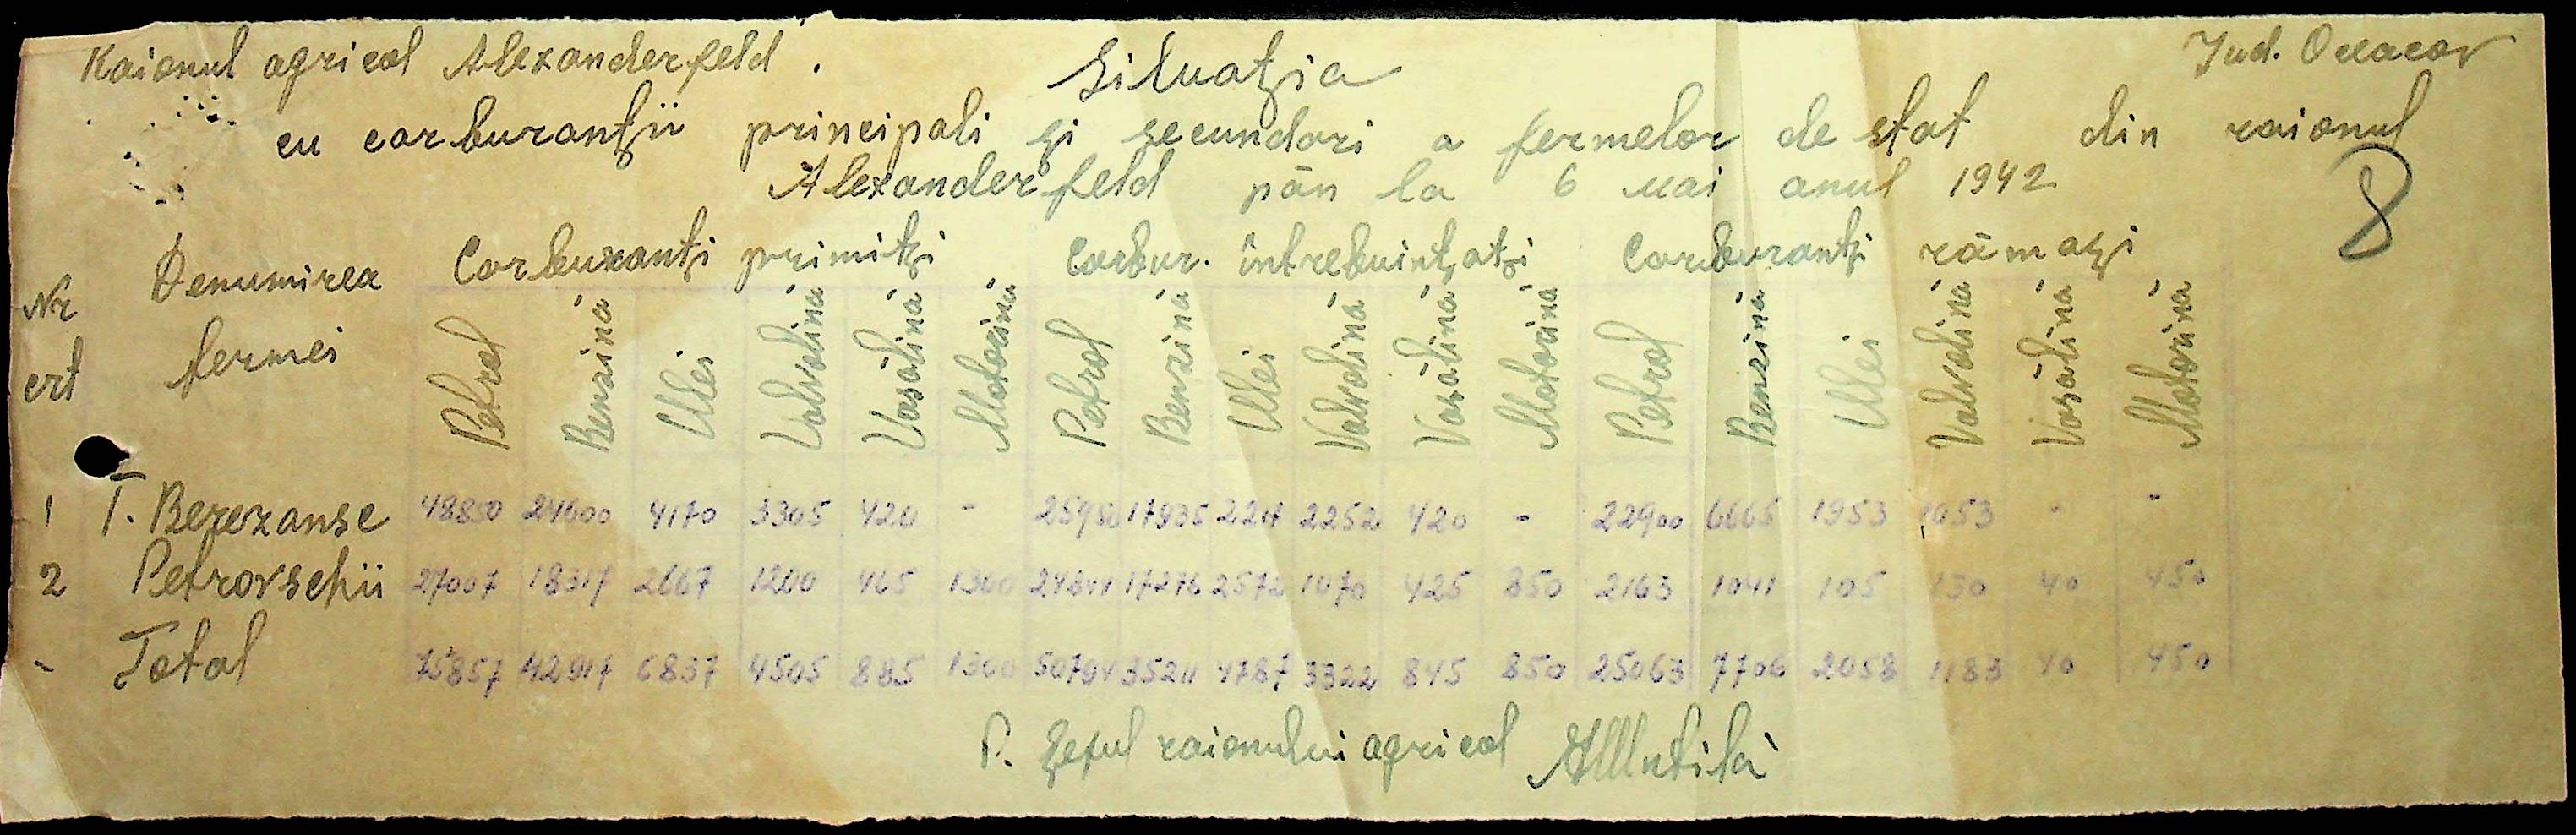 Raionul agricol Alexanderfeld.
Jud. Oceacov
Situatzia
cu carburanţii principali și secundari a fermelor de stat din raionul
Alexanderfeld pān la 6 Mai anul 1942
8
Nr crt Denumirea fermei Carburanţi primiţi Carbur. întrebuinţaţi Carburanţi rāmași
Petrol Benzina Ulei Valvolina Vasalina Motorina Petrol Benzina Ulei Valvolina Vasalina Motorina Petrol Benzina Ulei Valvolina Vasalina Motorina
1 T. Berezansc 48850 24600 4170 3305 420 - 25950 17935 2217 2252 420 - 22900 6665 1953 1053 - -
2 Petrovschii 27007 18317 2667 1200 465 1300 24844 17276 2572 1070 425 850 2163 1041 105 130 40 450
- Total 75857 42917 6837 4505 885 1300 50794 35211 4787 3322 845 850 25063 7706 2058 1183 40 450
P. Șeful raionului agricol